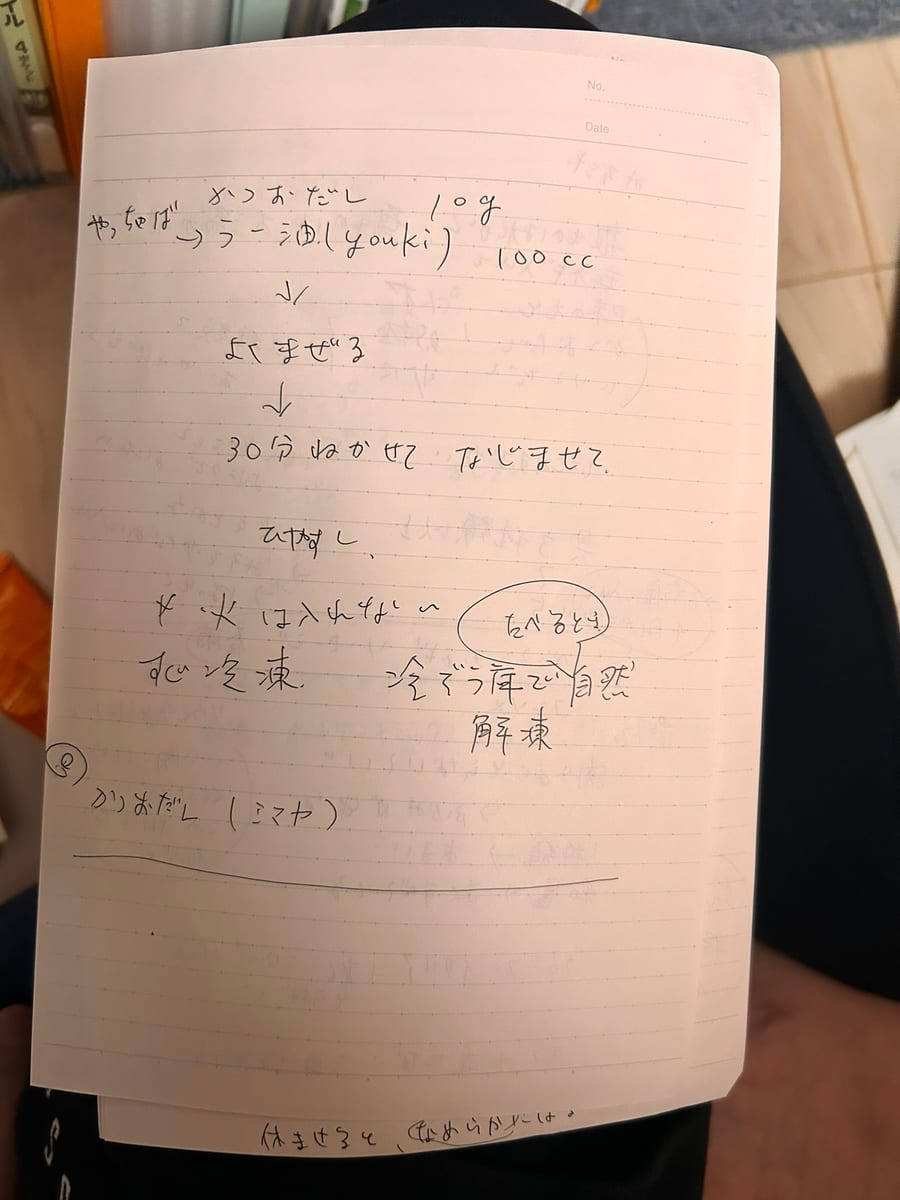 No.
Date
かつおだし 10g
やっちゃば → ラー油(youki) 100cc
↓
よくまぜる
↓
30分ねかせて なじませて、
ひやすし、
火は入れない
たべるとき
すぐ冷凍. 冷ぞう庫で自然
解凍
かつおだし (ミマヤ)
休ませると、なめらかに